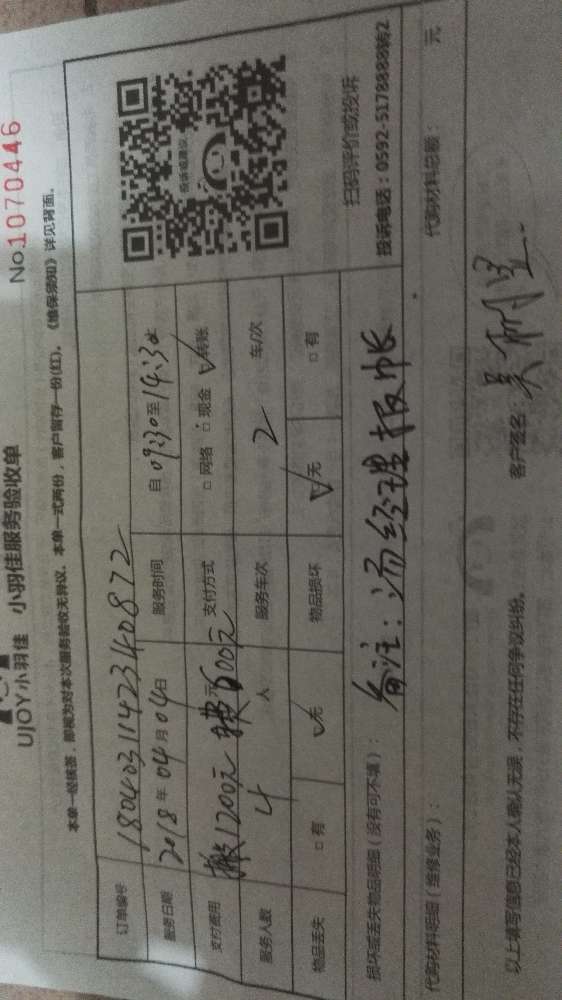 No 1070446
UJOY小羽佳 小羽佳服务验收单
本单一经接签，即视为对本次服务验收无异议。本单一式两份，客户留存一份(红)。《维保须知》详见背面。
订单编号 180403114234 0872
服务日期 2018年04月04日 服务时间 自09:30至14:30
支付费用 搬1200元 元 600元 支付方式 □ 网络 □ 现金 ☑转账
服务人数 4 人 服务车次 2 车/次
物品丢失 □ 有 ☑无 物品损坏 ☑无 □ 有
投诉或建议
扫码评价或投诉
投诉电话：0592-5178888转2
损坏或丢失物品明细（没有可不填）：
备注：汤经理报帐
代购材料明细（维修业务）： 代购材料总额： 元
以上填写信息已经本人确认无误，不存在任何争议纠纷。 客户签名：